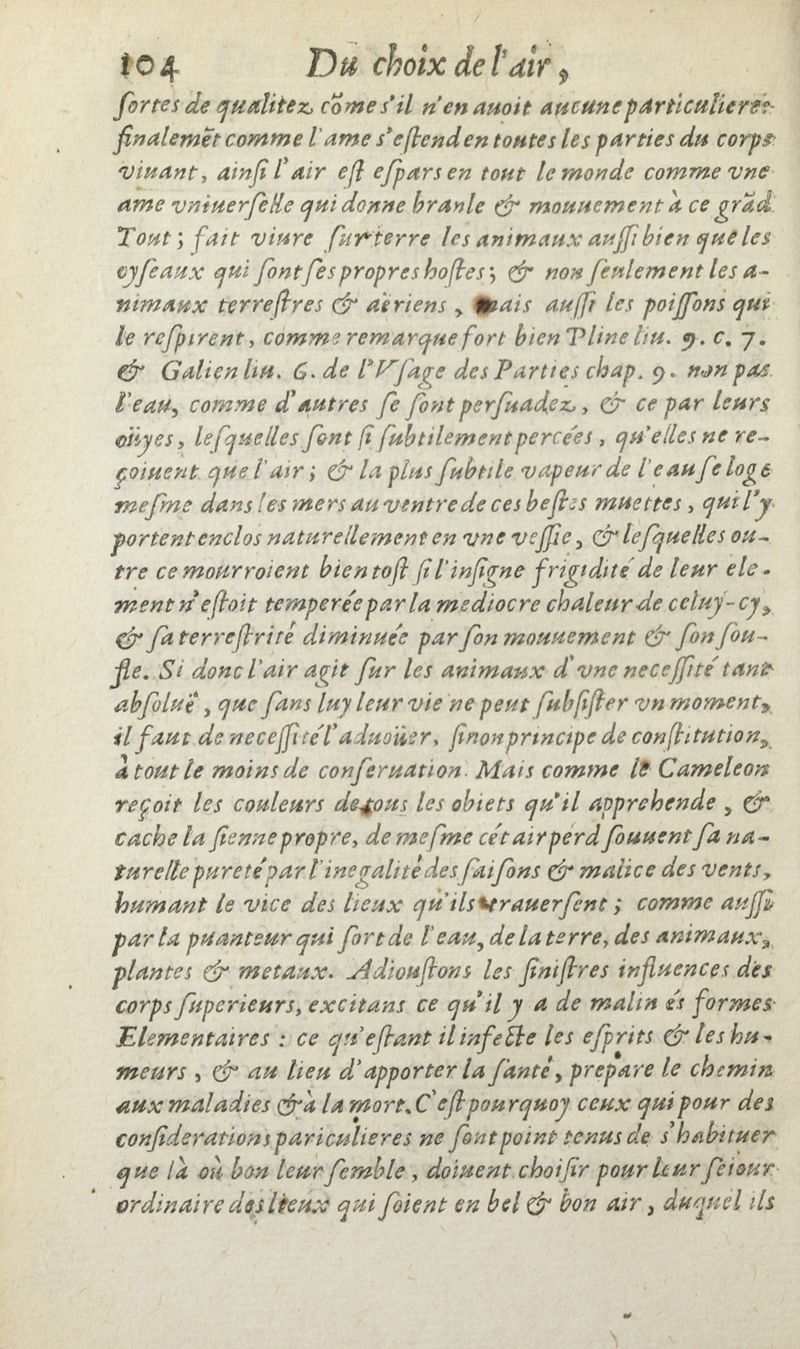 104 Du choix de l'air,
sortes de qualitez, cõme s'il n'en auoit aucune particuliere:
finalemẽt comme l'ame s'estend en toutes les parties du corps
viuant, ainsi l'air est espars en tout le monde comme vne
ame vniuerselle qui donne branle & mouuement à ce grãd
Tout; fait viure sur terre les animaux aussi bien que les
oyseaux qui sont ses propres hostes; & non seulement les a-
nimaux terrestres & aëriens, mais aussi les poissons qui
le respirent, comme remarque fort bien Pline liu. 9. c. 7.
& Galien liu. 6. de l'Vsage des Parties chap. 9. non pas
l'eau, comme d'autres se sont persuadez, & ce par leurs
oüyes, lesquelles sont si subtilement percées, qu'elles ne re-
çoiuent que l'air; & la plus subtile vapeur de l'eau se loge
mesme dans les mers au ventre de ces bestes muettes, qui l'y
portent enclos naturellement en vne vessie, & lesquelles ou-
tre ce mourroient bien tost si l'insigne frigidité de leur ele-
ment n'estoit temperée par la mediocre chaleur de celuy-cy,
& sa terrestrité diminuée par son mouuement & son sou-
fle. Si donc l'air agit sur les animaux d'vne necessité tant
absoluë, que sans luy leur vie ne peut subsister vn moment,
il faut de necessité l'aduoüer, sinon principe de constitution,
à tout le moins de conseruation. Mais comme le Cameleon
reçoit les couleurs de tous les obiets qu'il apprehende, &
cache la sienne propre, de mesme cét air perd souuent sa na-
turelle pureté par l'inegalité des saisons & malice des vents,
humant le vice des lieux qu'ils trauersent; comme aussi
par la puanteur qui sort de l'eau, de la terre, des animaux,
plantes & metaux. Adioustons les sinistres influences des
corps superieurs, excitans ce qu'il y a de malin és formes
Elementaires: ce qu'estant il infecte les esprits & les hu-
meurs, & au lieu d'apporter la santé, prepare le chemin
aux maladies & à la mort. C'est pourquoy ceux qui pour des
considerations pariculieres ne sont point tenus de s'habituer
que là où bon leur semble, doiuent choisir pour leur seiour
ordinaire des lieux qui soient en bel & bon air, duquel ils